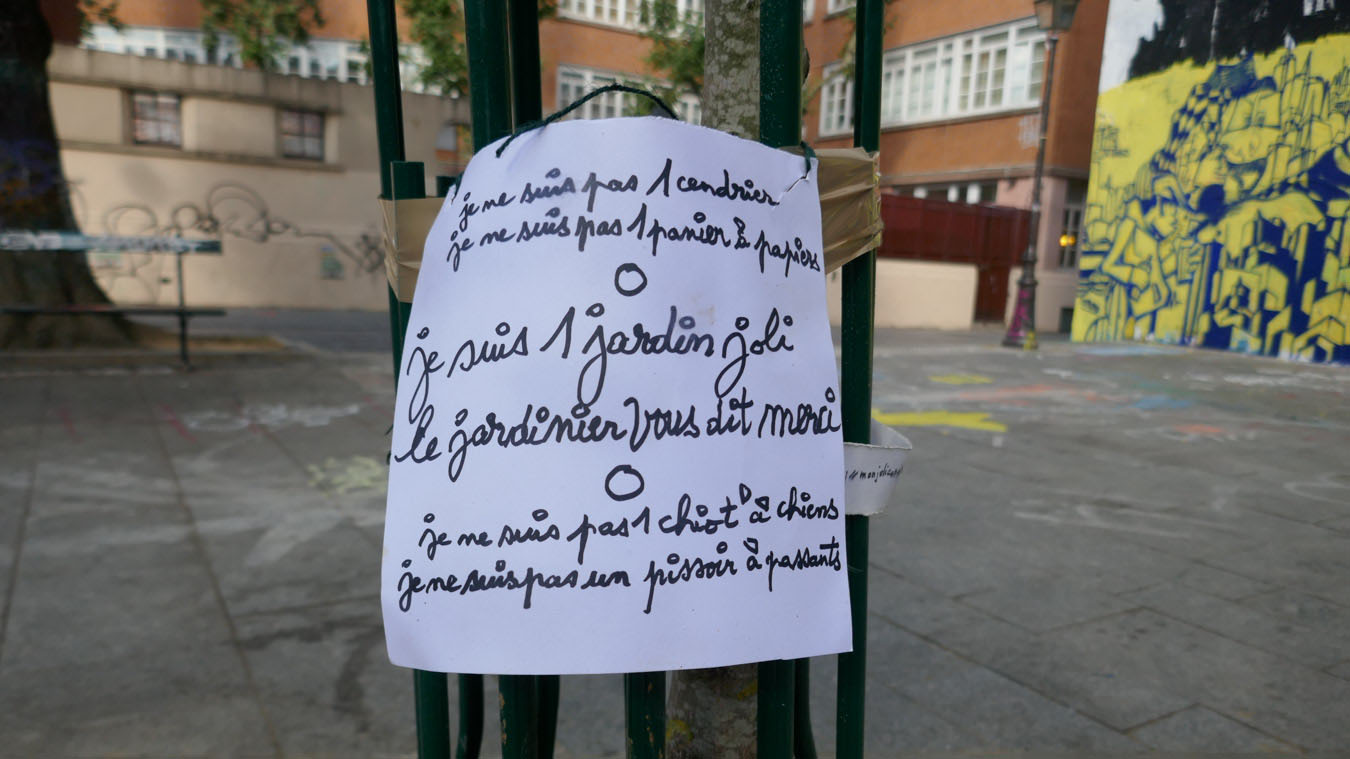 je ne suis pas 1 cendrier
je ne suis pas 1 panier à papiers
O
je suis 1 jardin joli
le jardinier vous dit merci
O
je ne suis pas 1 chiot à chiens
je ne suis pas un pissoir à passants